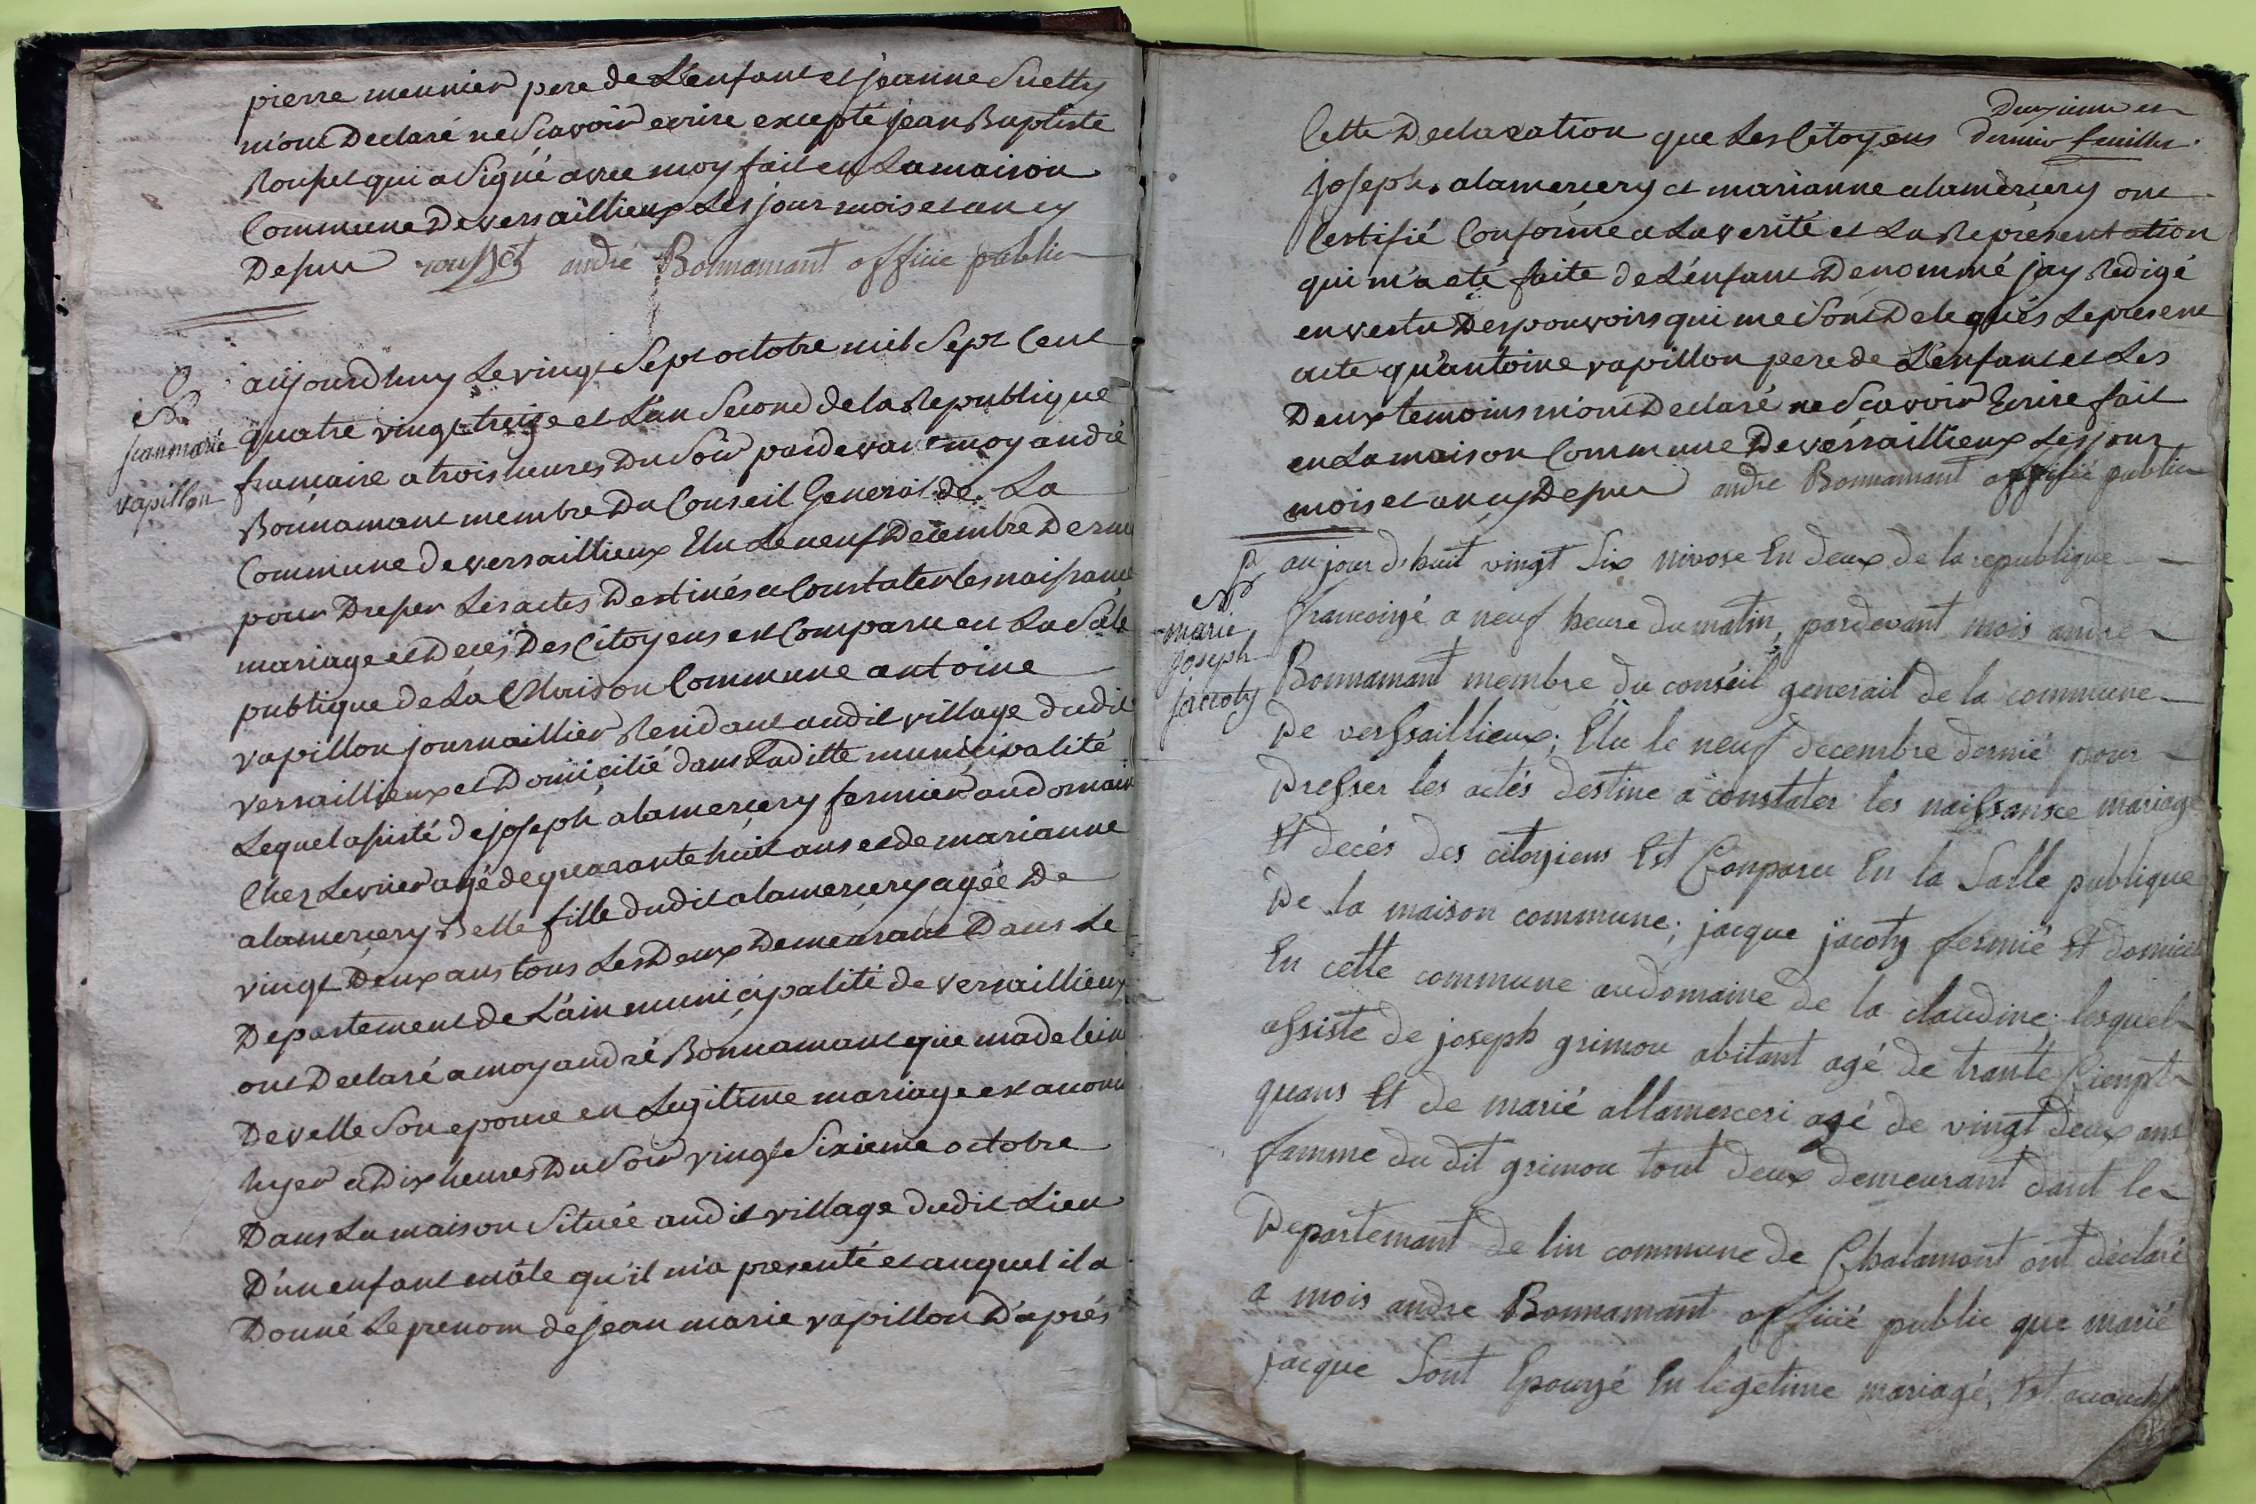 pierre meunier pere de L'enfant et jeanne Suetty
mont Declaré ne Scavoir ecrire excepté jean Baptiste
Rousset qui a Signé avec moy fait en La maison
Commune De versaillieux Les jour mois et an cy
Depui rousset andré Bonnamant officie public
N
jean marie
vapillon
aujourdhuy Le vingt Sept octobre mil Sept Cent
quatre vingt treize et L'an Second de la Republique
francaise a trois heures Du Soir pardevant moy andré
Bonnamant membre Du Conseil General de La
Commune de versaillieux Elu Le neuf Decembre Dernie
pour Dresser Les actes Destinés a Constater les naissance
mariage et Deces Des Citoyens est Comparu en La Sale
publique de La Maison Commune antoine
vapillon journaillier Residant audit village dudit
versaillieux et Domicilié dans Laditte municipalité
Lequel assisté de joseph alamerciery fermier au domaine
Chez Levrier agé de quarante huit ans et de marianne
alamerciery Belle fille dudit alamerciery agée De
vingt Deux ans tous Les Deux Demeurant Dans Le
Departement de L'ain municipalité de versaillieux
ont Declaré a moy andré Bonnamant que madelein
Develle Son epouse en Legitime mariage est accouch
hyer a Dix heures Du Soir vingt Sixieme octobre
Dans La maison Située audit village dudit Lieu
D'un enfant mâle qu'il m'a presenté et auquel il a
Donné Le prenom de jean marie vapillon D'aprés
Deuxieme et
dernier feuillet
Cette Declaration que Les Citoyens
joseph alamerciery et marianne alamerciery ont
Certifié Conforme a La verité et La Representation
qui m'a eté faite de L'enfant Denommé jay Redigé
en vertu Des pouvoirs qui me Sont Delegués Le present
acte qu'antoine vapillon pere de L'enfant et Les
Deux temoins m'ont Declaré ne Scavoir Ecrire fait
en La maison Commune De versaillieux Les jour
mois et an cy Depui andré Bonnamant officié public
N
marie
joseph
jaccoty
aujour d'huit vingt Six nivose En deux de la republique
francoizé a neuf heure du matin, pardevant mois andre
Bonnamant membre du conseil generail de la commune
De verssaillieux; Elu le neuf decembre dernié pour
Dresser les actés destine a constater les naissansce mariage
Et decés des citoyiens Est Conparu En la Salle publique
De la maison commune; jacque jacoty fermié Et domicil
En cette commune audomaine de la claudine lesquel
assiste de joseph grimon abitant agé de trante Cienpt
quans Et de marié allamerceri agé de vingt deux ans
famme du dit grimon tout deux demeurant dant le
Departemant de lin commune de Chalamont ont declaré
a mois andre Bonnamant officié public que marié
jacque Sont Epouzé En legetime mariagé, Est acouch